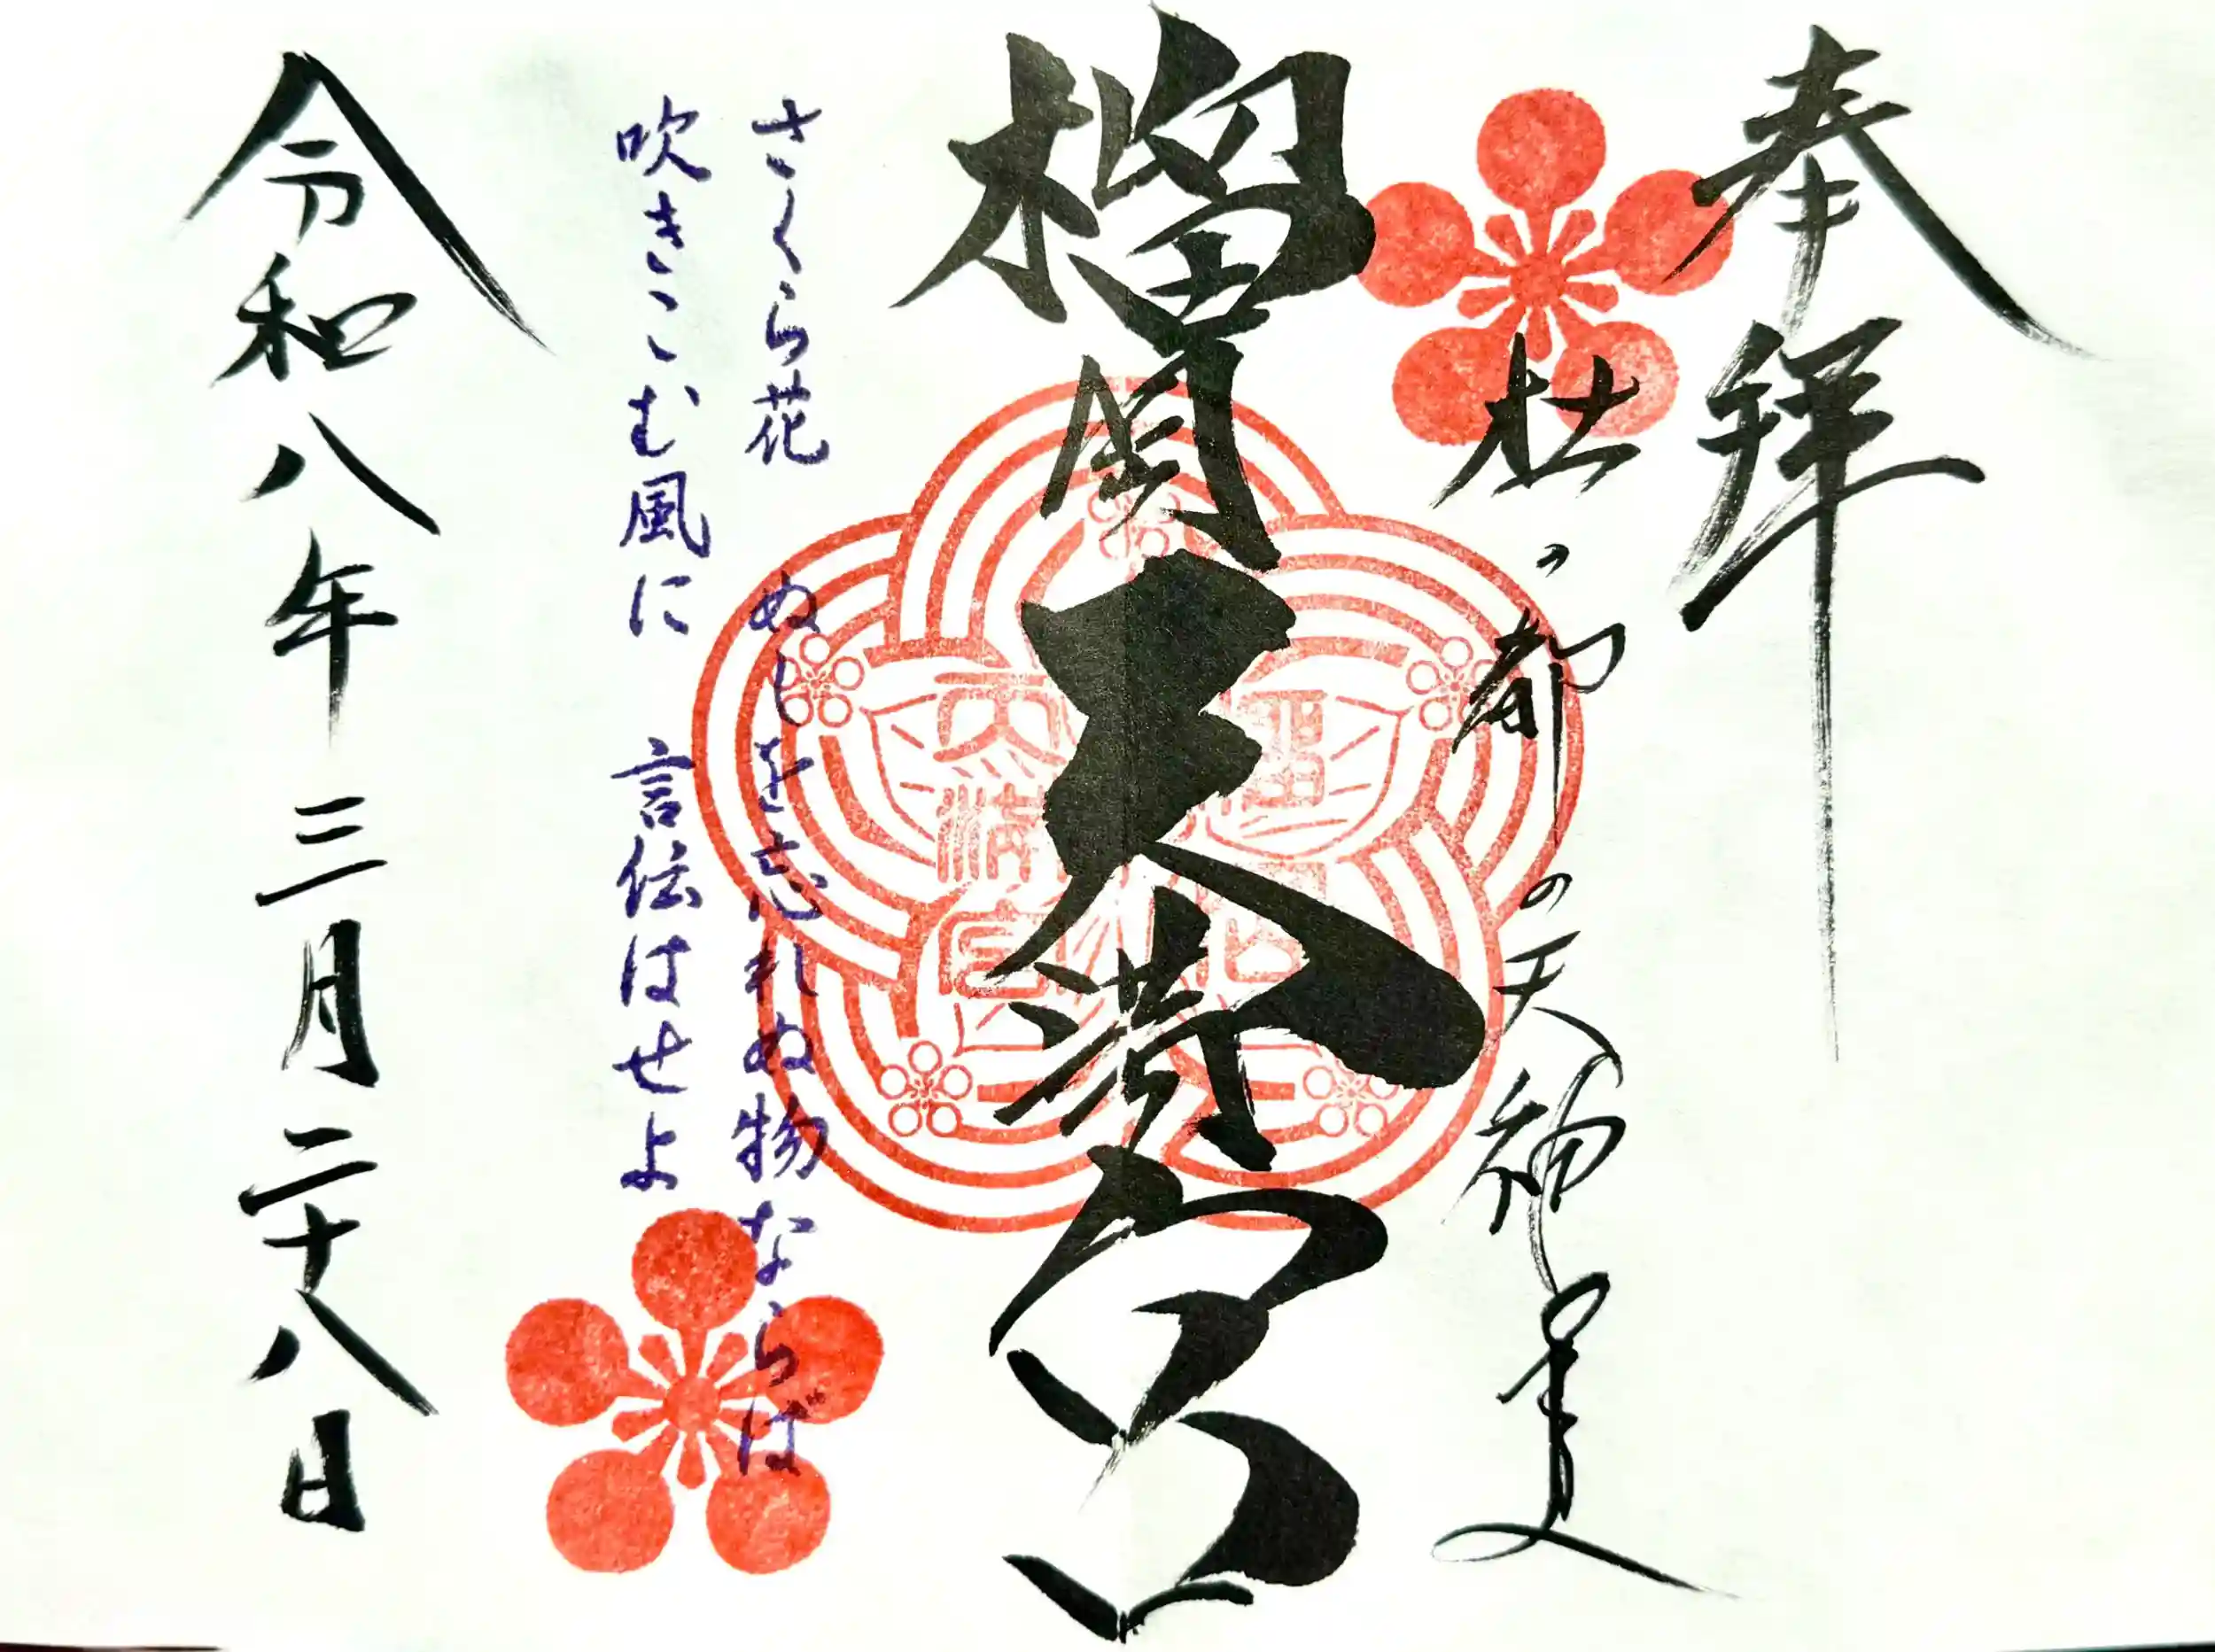 奉拝
杜の都の天神
榴岡天満宮
さくら花 ぬしを忘れぬ物ならば
吹きこむ風に 言伝はせよ
令和八年三月二十八日